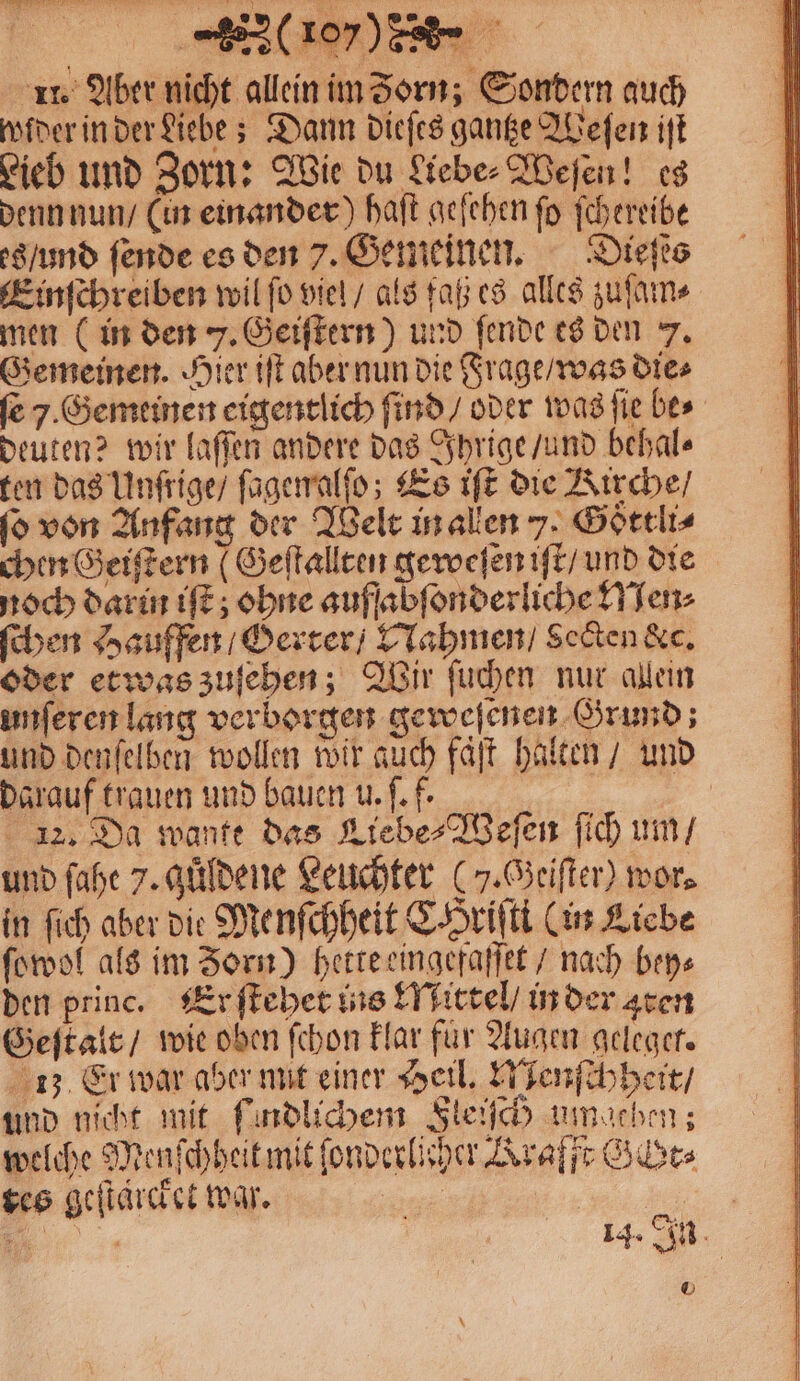 (107)
11. Aber nicht allein im Zorn; Sondern auch
wider in der Liebe; Dann dieſes gantze Weſen iſt
Lieb und Zorn: Wie du Liebe-Weſen! es
denn nun/ (in einander) haſt geſehen ſo ſchereibe
es/und ſende es den 7. Gemeinen. Dieſes
Einſchreiben wil ſo viel/ als faß es alles zuſam-
men (in den 7. Geiſtern) und ſende es den 7.
Gemeinen. Hier iſt aber nun die Frage/was die-
ſe 7. Gemeinen eigentlich ſind/ oder was ſie be-
deuten? wir laſſen andere das Ihrige/und behal-
ten das Unſrige/ ſagen alſo; Es iſt die Kirche/
ſo von Anfang der Welt in allen 7. Göttli-
chen Geiſtern (Geſtallten geweſen iſt/ und die
noch darin iſt; ohne auf abſonderliche Men-
ſchen Hauffen/Oerter/ Nahmen/ Secten &c.
oder etwas zuſehen; Wir ſuchen nur allein
unſeren lang verborgen geweſenen Grund;
und denſelben wollen wir auch fäſt halten/ und
darauf trauen und bauen u. ſ. f.
12. Da wante das Liebe-Weſen ſich um/
und ſahe 7. güldene Leuchter (7. Geiſter) wor-
in ſich aber die Menſchheit CHriſti (in Liebe
ſowol als im Zorn) hette eingefaſſet/ nach bey-
den princ. Er ſtehet ins Mittel/ in der 4ten
Geſtalt/ wie oben ſchon klar für Augen geleget.
13 Er war aber mit einer Heil. Menſchheit/
und nicht mit ſündlichem Fleiſch umgeben;
welche Menſchheit mit ſonderlicher Krafft GOt-
tes geſtärcket war.
14. In